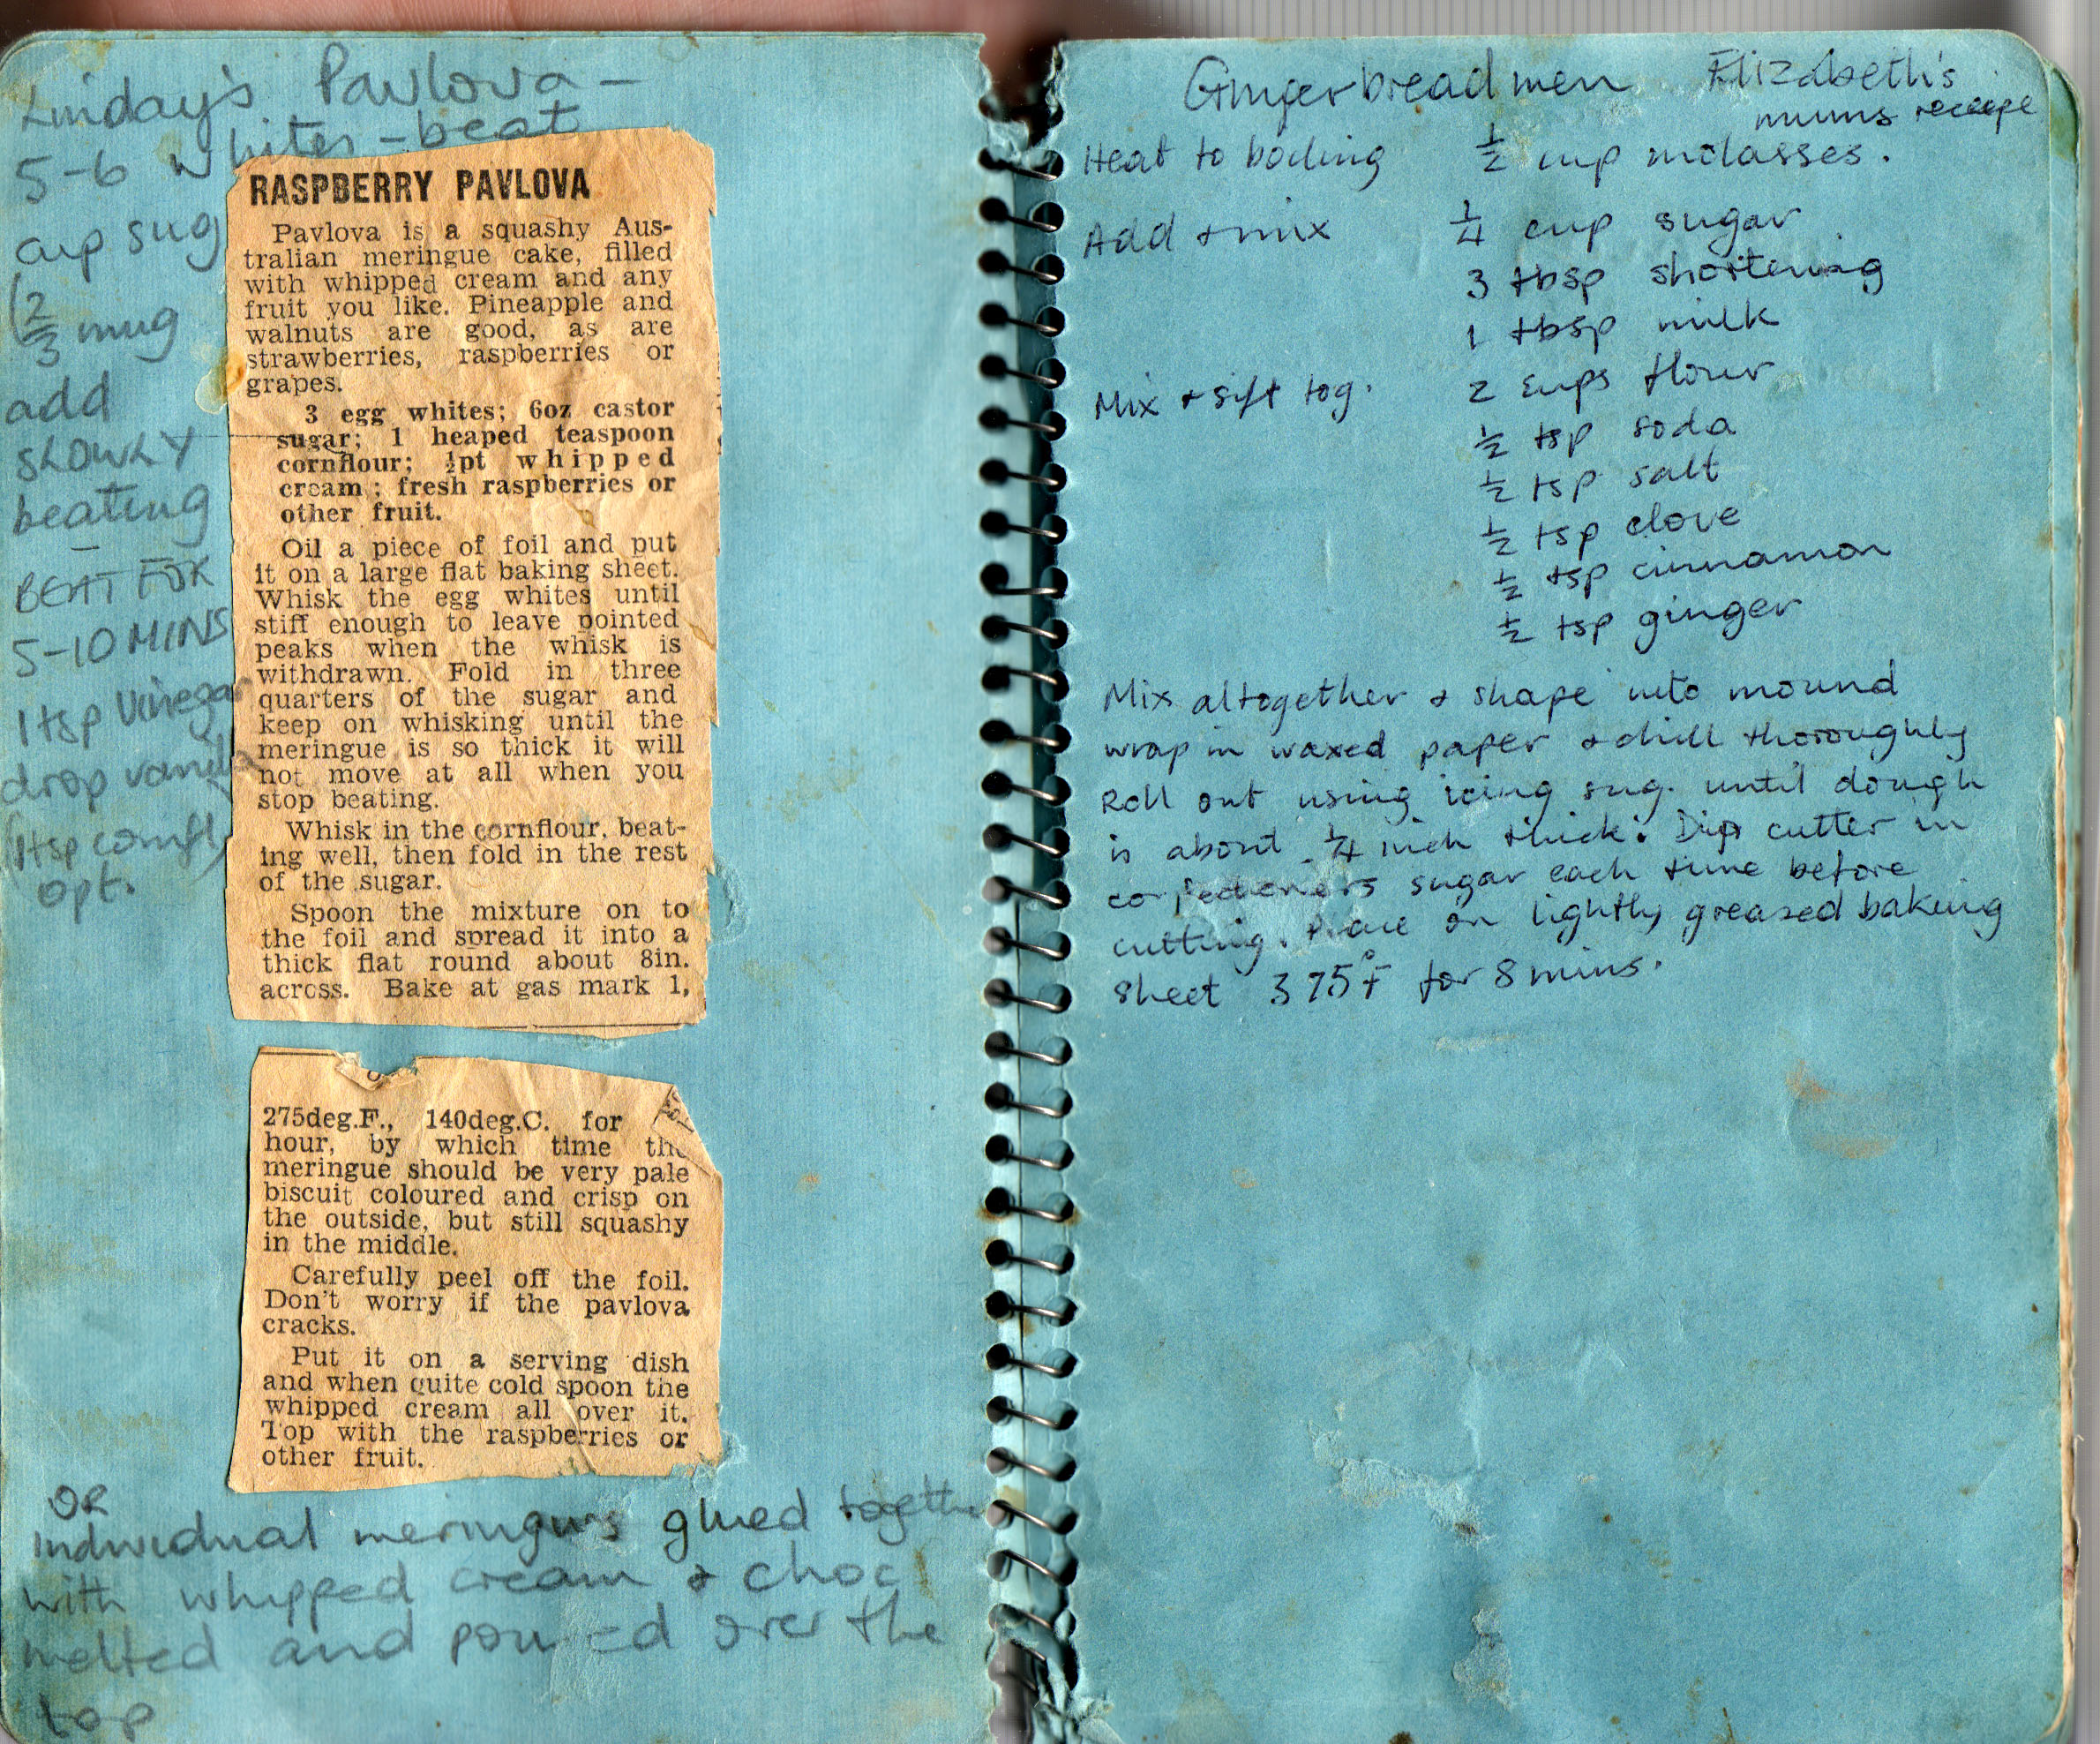 Linday's Pavlova -
5-6 whites - beat
cup sug
(2/3 mug
add
SLOWLY
beating
—
BEAT FOR
5-10 MINS
1 tsp vinegar
drop vanilla
(1tsp cornfl)
opt.
RASPBERRY PAVLOVA
Pavlova is a squashy Aus-
tralian meringue cake, filled
with whipped cream and any
fruit you like. Pineapple and
walnuts are good, as are
strawberries, raspberries or
grapes.
3 egg whites; 6oz castor
sugar; 1 heaped teaspoon
cornflour; ½pt whipped
cream; fresh raspberries or
other fruit.
Oil a piece of foil and put
it on a large flat baking sheet.
Whisk the egg whites until
stiff enough to leave pointed
peaks when the whisk is
withdrawn. Fold in three
quarters of the sugar and
keep on whisking until the
meringue is so thick it will
not move at all when you
stop beating.
Whisk in the cornflour, beat-
ing well, then fold in the rest
of the sugar.
Spoon the mixture on to
the foil and spread it into a
thick flat round about 8in.
across. Bake at gas mark 1,
275deg.F., 140deg.C. for
hour, by which time the
meringue should be very pale
biscuit coloured and crisp on
the outside, but still squashy
in the middle.
Carefully peel off the foil.
Don't worry if the pavlova
cracks.
Put it on a serving dish
and when quite cold spoon the
whipped cream all over it.
Top with the raspberries or
other fruit.
OR
Individual meringues glued together
with whipped cream & choc
melted and poured over the
top
Gingerbread men Elizabeth's
mums receipe
Heat to boiling ½ cup molasses.
Add + mix ¼ cup sugar
3 tbsp shortening
1 tbsp milk
Mix + sift tog. 2 cups flour
½ tsp soda
½ tsp salt
½ tsp clove
½ tsp cinnamon
½ tsp ginger
Mix altogether & shape into mound
wrap in waxed paper & chill thoroughly
Roll out using icing sug. until dough
is about ¼ inch thick. Dip cutter in
confectioners sugar each time before
cutting. Place on lightly greased baking
sheet 375°F for 8 mins.